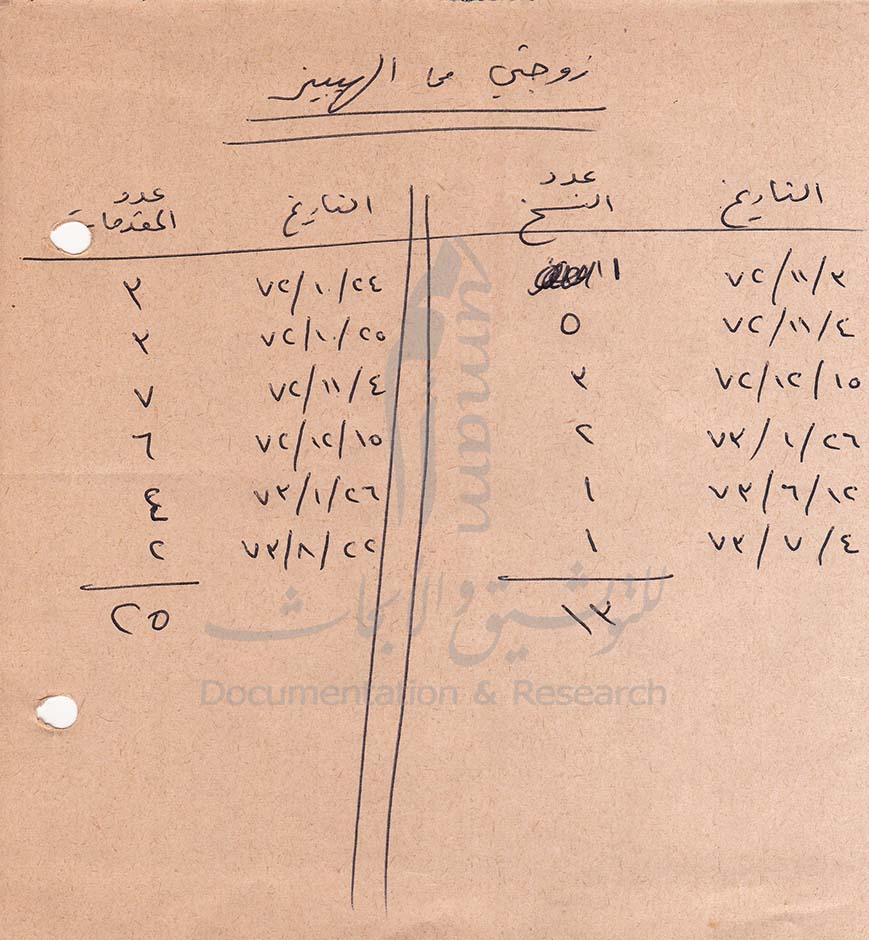 زوجتي من الهيبيز
التاريخ عدد النسخ التاريخ عدد المقدمات
٧٢/١١/٣ ١ ٧٢/١٠/٢٤ ٣
٧٢/١١/٤ ٥ ٧٢/١٠/٢٥ ٣
٧٢/١٢/١٥ ٣ ٧٢/١١/٤ ٧
٧٣/١/٢٦ ٢ ٧٢/١٢/١٥ ٦
٧٣/٦/١٢ ١ ٧٣/١/٢٦ ٤
٧٣/٧/٤ ١ ٧٣/٨/٢٢ ٢
١٣ ٢٥
umam
للتوثيق والأبحاث
Documentation & Research